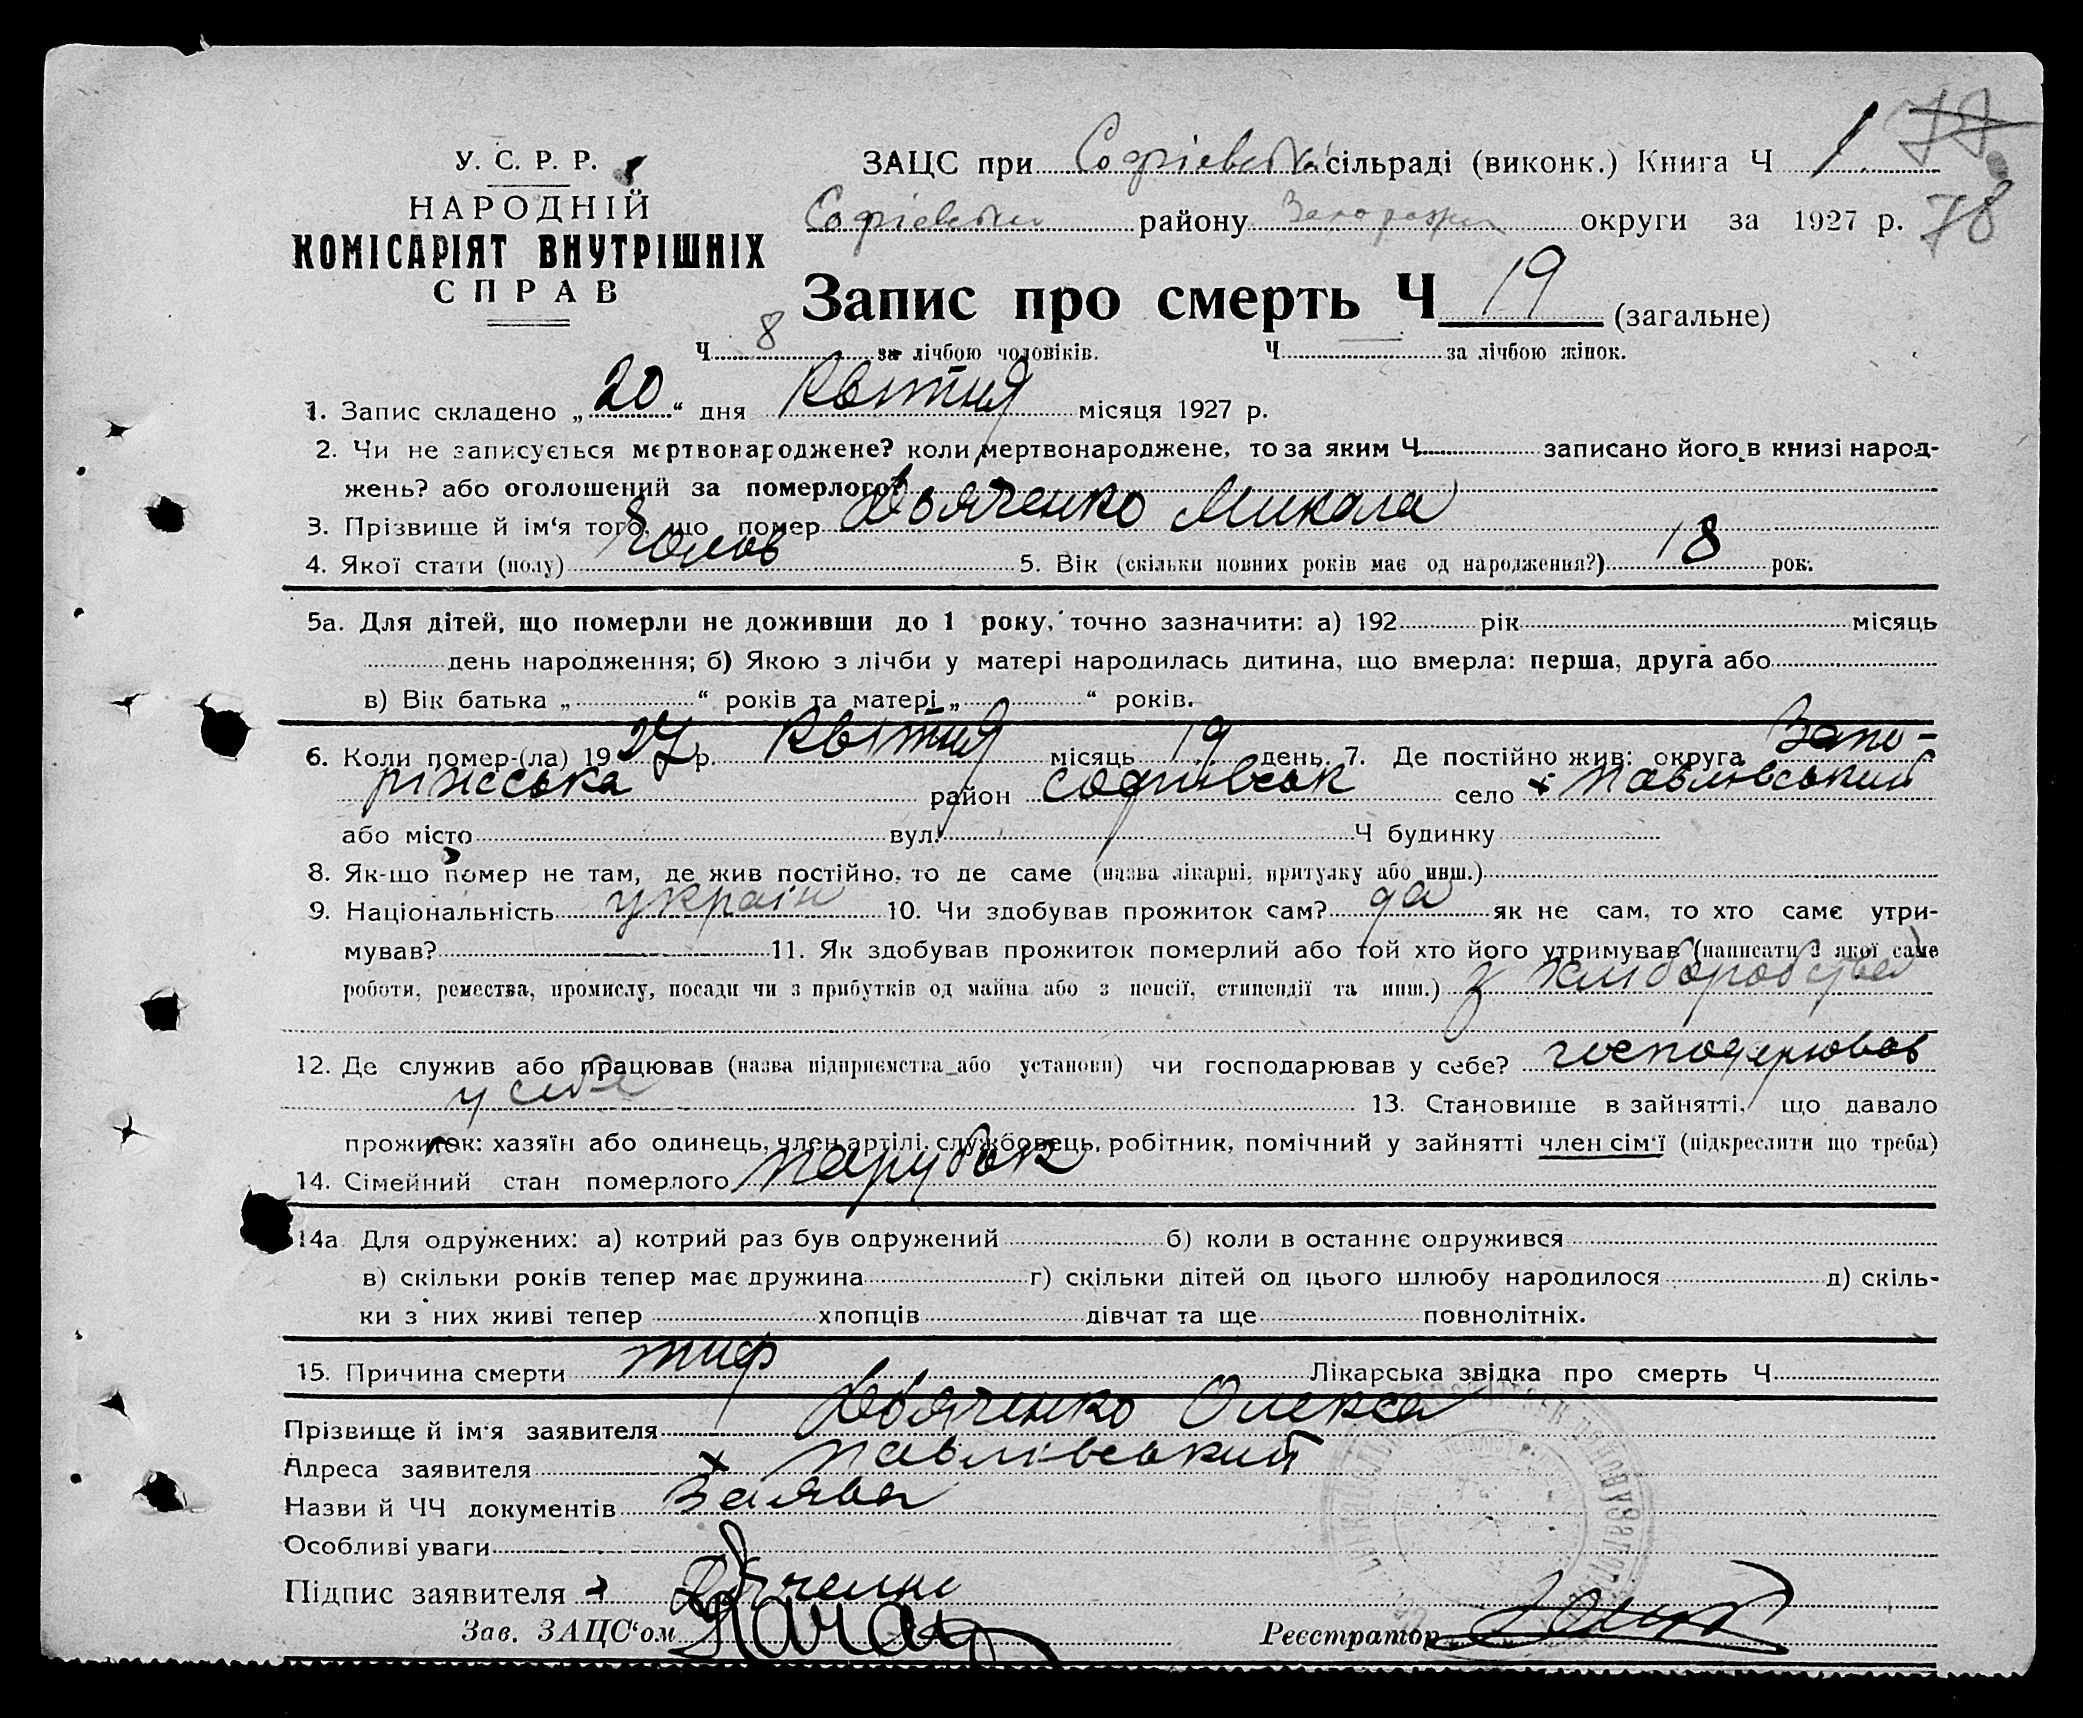 У. С. Р. Р.
НАРОДНІЙ
КОМІСАРІЯТ ВНУТРІШНІХ
СПРАВ
ЗАЦС при Софієвській сільраді (виконк.) Книга Ч 1
77
78
Софієвськ району Запорізьк округи за 1927 р.
Запис про смерть Ч 19 (загальне)
Ч 8 за лічбою чоловіків. Ч за лічбою жінок.
1. Запис складено „20“ дня Квітня місяця 1927 р.
2. Чи не записується мертвонароджене? коли мертвонароджене, то за яким Ч записано його в книзі народ-
жень? або оголошений за померлого?
3. Прізвище й ім‘я того, що помер Дьяченко Микола
4. Якої стати (полу) Чолов 5. Вік (скільки повних років має од народження?) 18 рок.
5а. Для дітей, що померли не доживши до 1 року, точно зазначити: а) 192 рік місяць
день народження; б) Якою з лічби у матері народилась дитина, що вмерла: перша, друга або
в) Вік батька „ “ років та матері „ “ років.
6. Коли помер-(ла) 1927 р. Квітня місяць 19 день. 7. Де постійно жив: округа Запо-
ріжська район Софиівськ село х Павлівський
або місто вул. Ч будинку
8. Як-що помер не там, де жив постійно, то де саме (назва лікарні, притулку або инш.)
9. Національність україн 10. Чи здобував прожиток сам? да як не сам, то хто саме утри-
мував? 11. Як здобував прожиток померлий або той хто його утримував (написати з якої саме
роботи, ремества, промислу, посади чи з прибутків од майна або з пенсії, стипендії та инш.) з хліборобства
12. Де служив або працював (назва підприємства або установи) чи господарював у себе? господарював
у себе 13. Становище в зайнятті, що давало
прожиток: хазяїн або одинець, член артілі, службовець, робітник, помічний у зайнятті член сім‘ї (підкреслити що треба)
14. Сімейний стан померлого парубок
14а Для одружених: а) котрий раз був одружений б) коли в останнє одружився
в) скільки років тепер має дружина г) скільки дітей од цього шлюбу народилося д) скіль-
ки з них живі тепер хлопців дівчат та ще повнолітніх.
15. Причина смерти тиф Лікарська звідка про смерть Ч
Прізвище й ім‘я заявителя Дьяченко Олекса
Адреса заявителя х Павлівський
Назви й ЧЧ документів Заява
Особливі уваги
Підпис заявителя Дяченко
Зав. ЗАЦС‘ом
Реєстратор